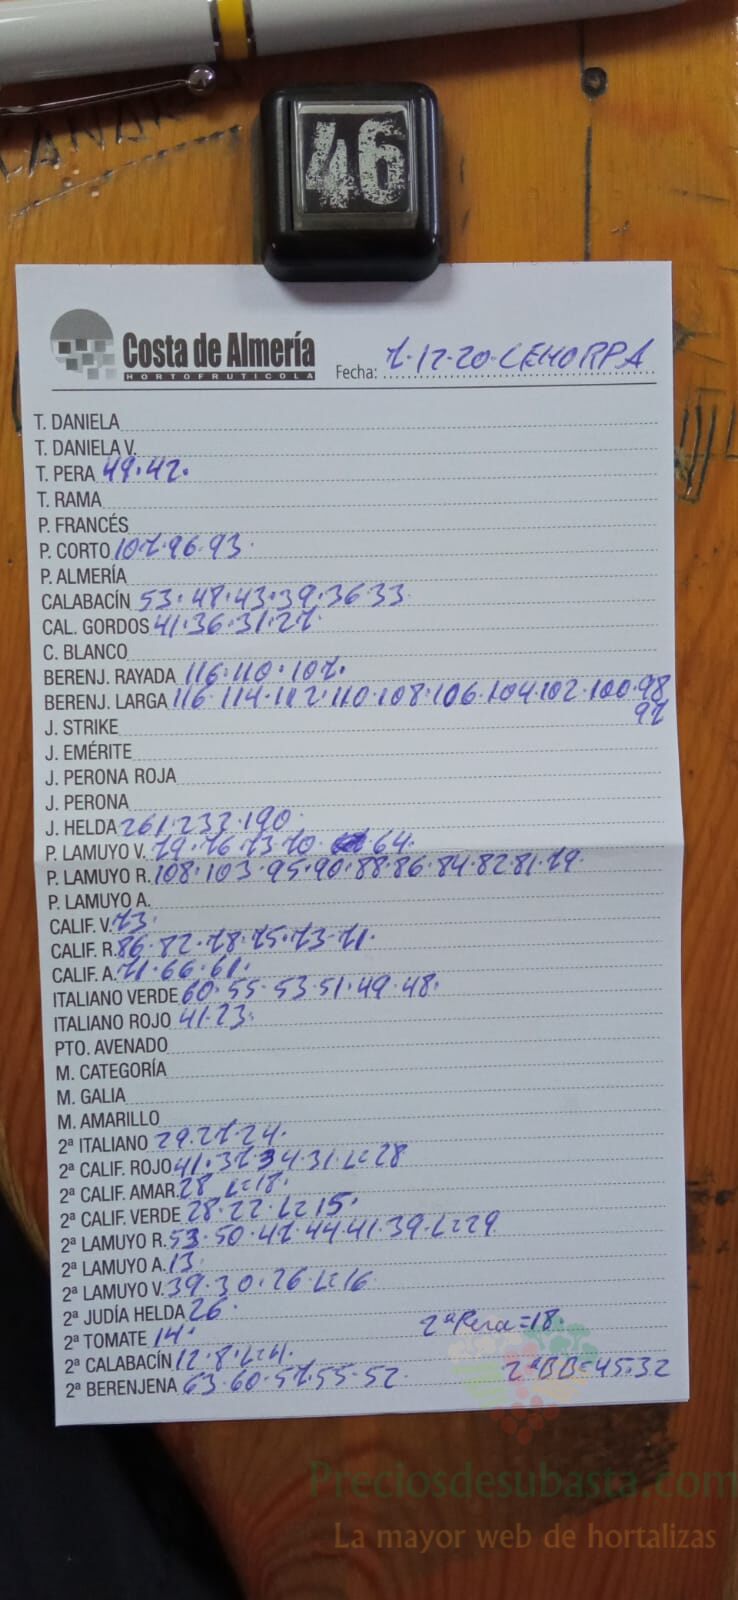 46
Costa de Almería
HORTOFRUTICOLA
Fecha: 7-12-20-CEHORPA
T. DANIELA
T. DANIELA V.
T. PERA 49.42.
T. RAMA
P. FRANCÉS
P. CORTO 107.96.93.
P. ALMERÍA
CALABACÍN 53.48.43.39.36 33.
CAL. GORDOS 41.36.31.27.
C. BLANCO
BERENJ. RAYADA 116.110.107.
BERENJ. LARGA 116.114.112.110.108.106.104.102.100.98
97
J. STRIKE
J. EMÉRITE
J. PERONA ROJA
J. PERONA
J. HELDA 261.233.190.
P. LAMUYO V. 79.76.73 70. 64.
P. LAMUYO R. 108.103.95.90.88.86.84.82 81.79.
P. LAMUYO A.
CALIF. V. 73.
CALIF. R. 86.82.78.75.73.71.
CALIF. A. 71.66.61.
ITALIANO VERDE 60.55.53.51.49.48.
ITALIANO ROJO 41.23.
PTO. AVENADO
M. CATEGORÍA
M. GALIA
M. AMARILLO
2ª ITALIANO 29.27.24.
2ª CALIF. ROJO 41.37.34.31.L=28
2ª CALIF. AMAR. 28 L=18.
2ª CALIF. VERDE 28.22.L=15.
2ª LAMUYO R. 53.50.47.44.41.39.L=29
2ª LAMUYO A. 13.
2ª LAMUYO V. 39.30.26 L=16
2ª JUDÍA HELDA 26.
2ª TOMATE 14. 2ª Pera=18.
2ª CALABACÍN 12.8.L=4.
2ª BERENJENA 63.60.57.55.52. 2ªBB=45.32
Preciosdesubasta.com
La mayor web de hortalizas